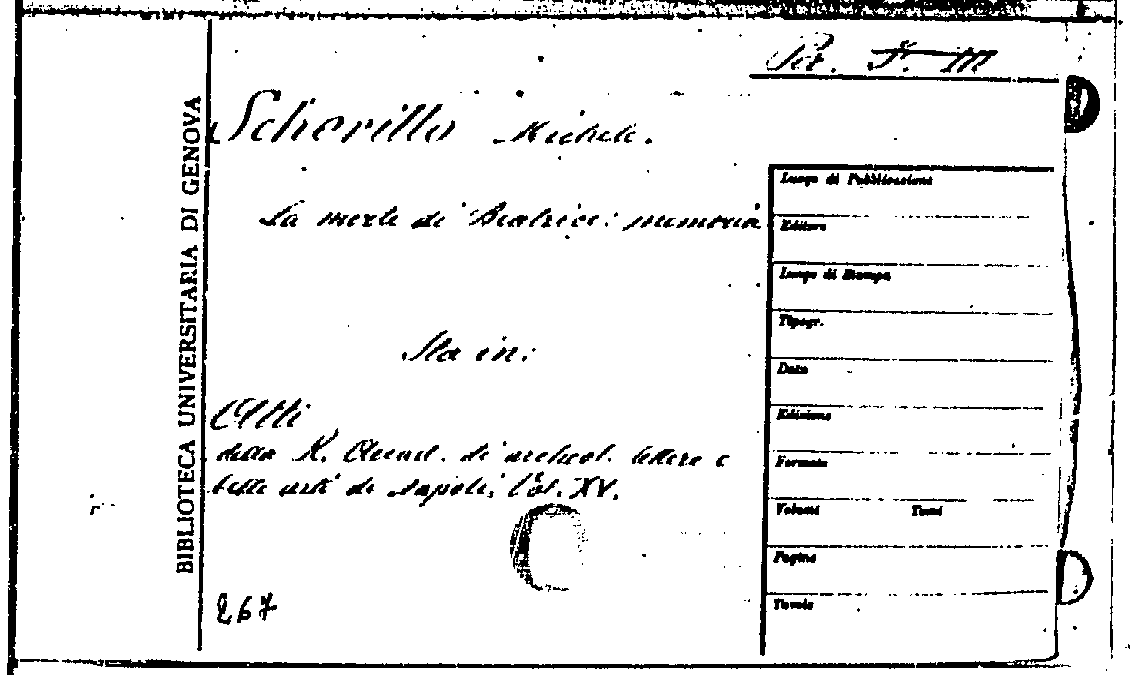 BIBLIOTECA UNIVERSITARIA DI GENOVA
Scherillo Michele.
La morte di Beatrice: memoria
Sta in:
Atti
della R. Accad. di archeol. lettere e
belle arti di Napoli, Vol. XV.
267
Luogo di Pubblicazione
Editore
Luogo di Stampa
Tipogr.
Data
Edizione
Formato
Volumi Tomi
Pagine
Tavole